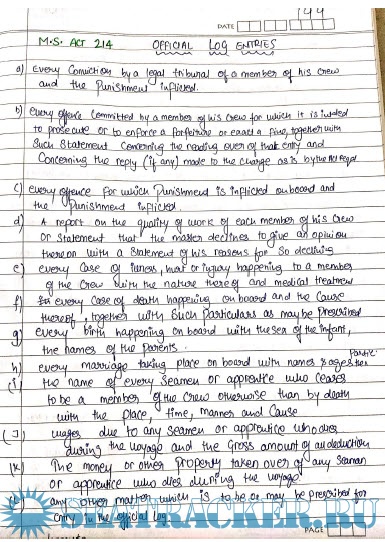 144
DATE
M.S. ACT 214 OFFICIAL LOG ENTRIES
a) Every Conviction by a legal tribunal of a member of his crew
and the Punishment inflicted.
b) every offence Committed by a member of his Crew for which it is intended
to prosecute or to enforce a forfeiture or exact a fine, together with
Such Statement Concerning the reading over of that entry and
Concerning the reply (if any) made to the charge as is by the Act Reqd
c) every offence for which Punishment is inflicted onboard and
the Punishment inflicted
d) A report on the quality of work of each member of his Crew
or Statement that the master declines to give an opinion
thereon with a Statement of his reasons for so declining
e) every Case of illness, hurt or injury happening to a member
of the Crew with the nature thereof and medical treatment
f) every Case of death happening on board and the Cause
thereof, together with Such Particulars as may be Prescribed
g) every birth happening on board with the sex of the infant,
the names of the Parents.
h) every marriage taking place on board with names & ages
(i) the name of every Seamen or apprentice who ceases
to be a member of the Crew otherwise than by death
with the place, time, manner and Cause
(J) wages due to any Seamen or apprentice who dies
during the voyage and the Gross amount of all deduction
(k) The money or other property taken over of any Seaman
or apprentice who dies during the voyage
any other matter which is to be or may be prescribed for
entry in the official log.
SEATRACKER.RU
PAGE